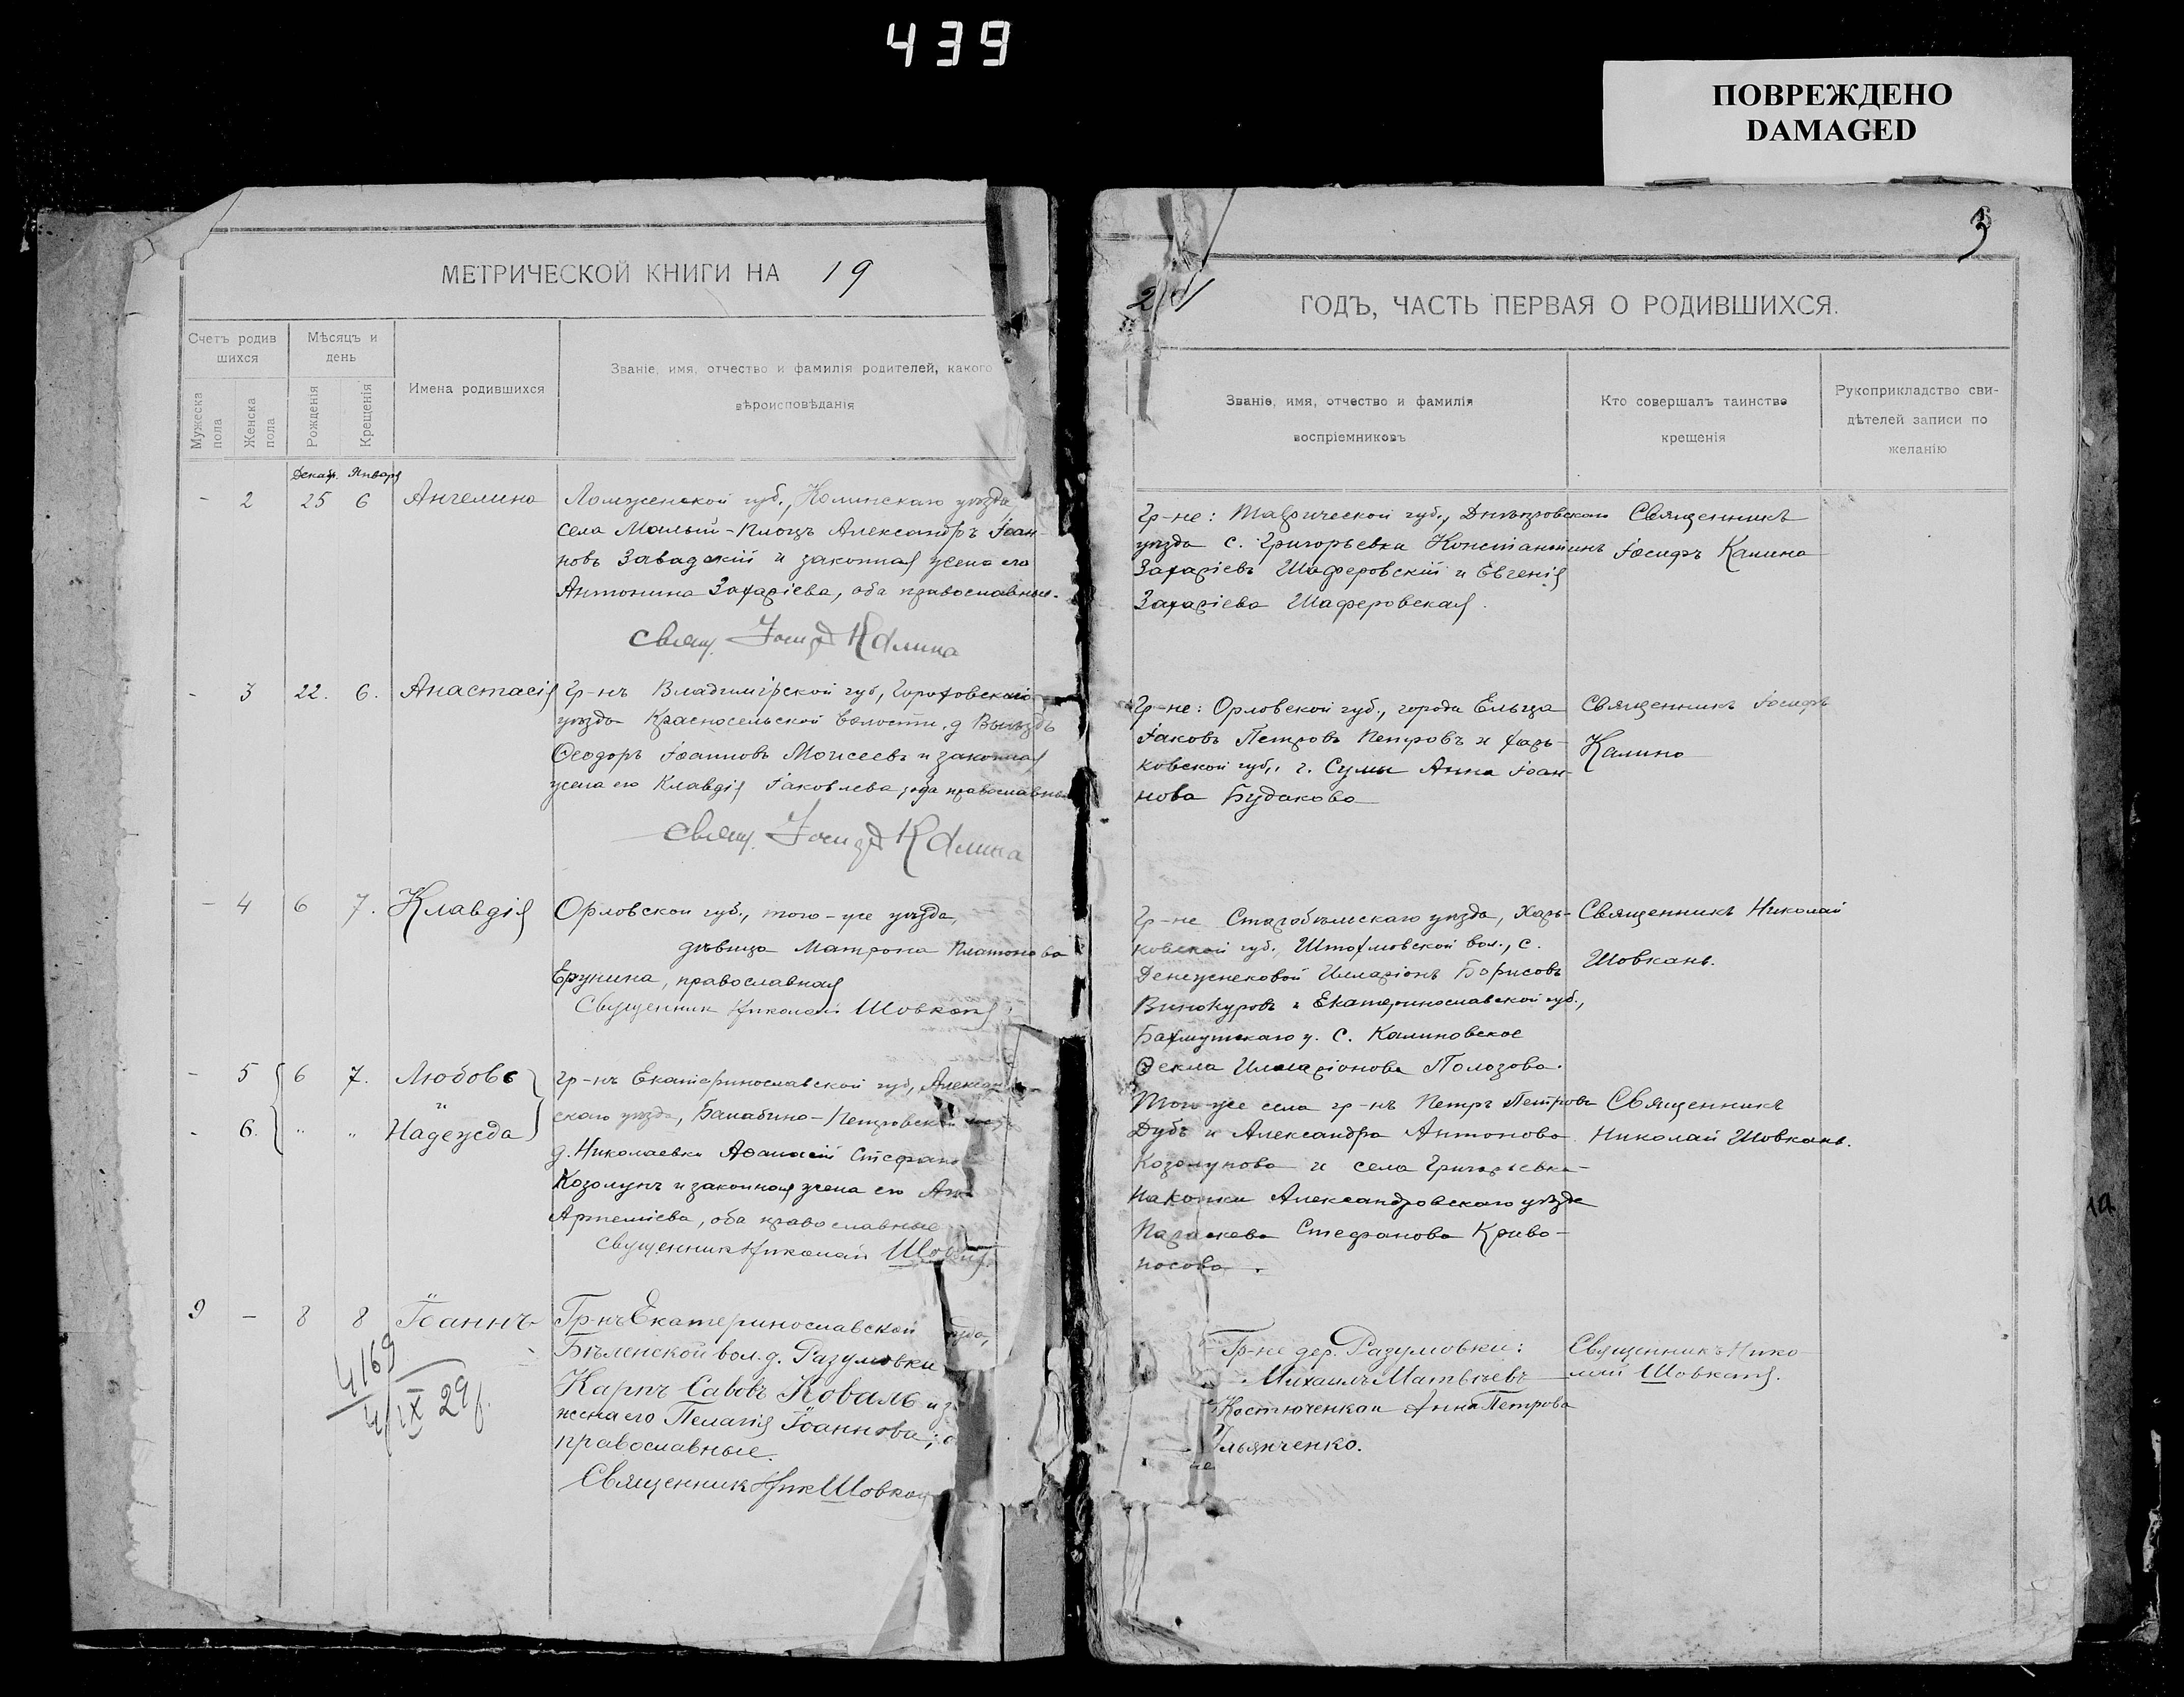 439
ПОВРЕЖДЕНО
DAMAGED
3
МЕТРИЧЕСКОЙ КНИГИ НА 19
Счетъ родив
шихся
Мѣсяцъ и
день
Мужеска
пола
Женска
пола
Рожденія
Крещенія
Имена родившихся
Званіе, имя, отчество и фамилія родителей, какого
вѣроисповѣданія
Декабр. Января
- 2 25 6 Ангелина
Ломженской губ., уѣзда,
села Малый-Плоцъ Александръ Іоан-
новъ Завадскій и законная жена его
Антонина Захаріева, оба православные.
Свящ. Іосифъ Калина
- 3 22. 6. Анастасія
Гр-нъ Владимірской губ., Гороховскаго
уѣзда Красносельской волости, д. Выѣздъ
Ѳеодоръ Іоанновъ Моисеевъ и законная
жена его Клавдія Іаковлева, оба православные
Свящ. Іосифъ Калина
- 4 6 7. Клавдія
Орловской губ., того-же уѣзда,
дѣвица Матрона Платонова
Ерунина, православная
Священник Николай Шовкань
- 5 6 7. Любовь
и
- 6. " " Надежда
Гр-нъ Екатеринославской губ., Александ
скаго уѣзда, Балабино-Петровской
д. Николаевки Аѳанасій Стефано
Козолупъ и законная жена его
Артеміева, оба православные
Священник Николай Шовкань
9 - 8 8 Іоаннъ
Гр-нъ Екатеринославской
Бѣленской вол. д. Разумовки
Карпъ Савовъ Коваль и з
жена его Пелагія Іоаннова; о
православные.
Священник Ник Шовкан
4169
4/IX 29
21
ГОДЪ, ЧАСТЬ ПЕРВАЯ О РОДИВШИХСЯ.
Званіе, имя, отчество и фамилія
воспріемниковъ
Кто совершалъ таинство
крещенія
Рукоприкладство сви-
дѣтелей записи по
желанію
Гр-не: Таврической губ., Днѣпровскаго
уѣзда с. Григорьевки Константинъ
Захаріевъ Шаферовскій и Евгенія
Захаріева Шаферовская.
Священникъ
Іосифъ Калина
Гр-не: Орловской губ., города Ельца
Іаковъ Петровъ Петровъ и Харь-
ковской губ., г. Сумы Анна Іоан-
нова Будакова
Священникъ Іосифъ
Калина
Гр-не Старобѣльскаго уѣзда, Харь-
ковской губ., вол., с.
Денежниковой Иларіонъ Борисовъ
Винокуровъ и Екатеринославской губ.,
Бахмутскаго у. с. Калиновское
Ѳекла Иларіонова Полозова.
Священникъ Николай
Шовкань.
Того-же села гр-нъ Петръ Петровъ
Дубъ и Александра Антонова
Козолупова и села Григорьевка-
Александровскаго уѣзда
Параскева Стефанова Криво-
носова.
Священникъ
Николай Шовкань.
Гр-не дер. Разумовки:
Михаилъ Матвѣевъ
Костюченко и Анна Петрова
льянченко.
Священникъ Нико-
лай Шовкань.